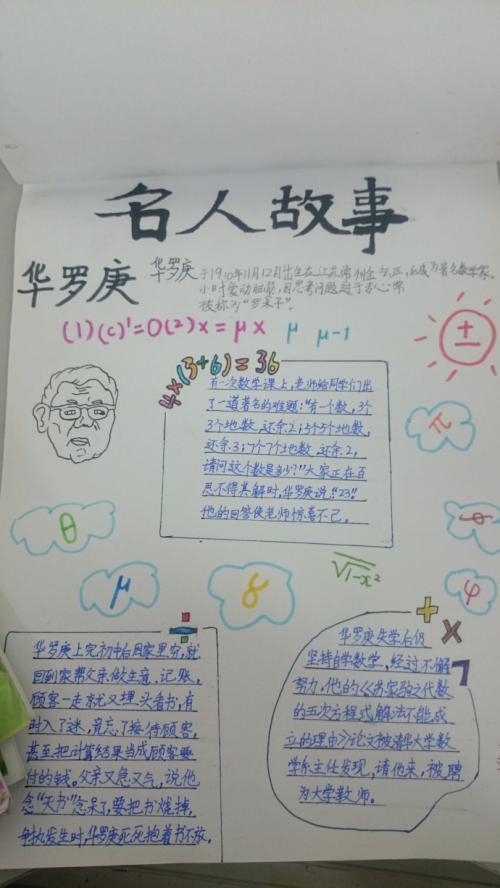 名人故事
华罗庚
华罗庚于1910年11月12日出生在江苏常州金坛区,后成为著名数学家。
小时爱动脑筋,因思考问题过于专心常
被称为"罗呆子"。
(1)(c)'=0(2)x=μx μ μ-1
±
4×(3+6)=36
有一次数学课上,老师给同学们出
了一道著名的难题:"有一个数,3个
3个地数,还余2;5个5个地数,
还余3;7个7个地数,还余2,
请问这个数是多少?"大家正在百
思不得其解时,华罗庚说:"23!"
他的回答使老师惊喜不已。
π
θ
μ
8
√1-x²
φ
÷
+
×
华罗庚上完初中后因家里穷,就
回到家帮父亲做生意、记账,
顾客一走就又埋头看书,有
时入了迷,竟忘了接待顾客,
甚至把计算结果当成顾客要
付的钱。父亲又急又气,说他
念"天书"念呆了,要把书烧掉,
争执发生时,华罗庚死死抱着书不放。
华罗庚失学后仍
坚持自学数学,经过不懈
努力,他的《苏家驹之代数
的五次方程式解法不能成
立的理由》论文被清华大学数
学系主任发现,请他来,被聘
为大学教师。